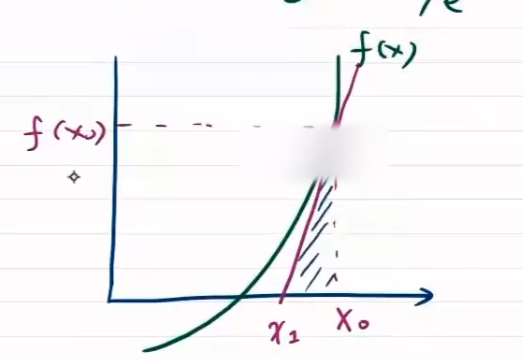 f(x)
f(x₀)
x₁ x₀